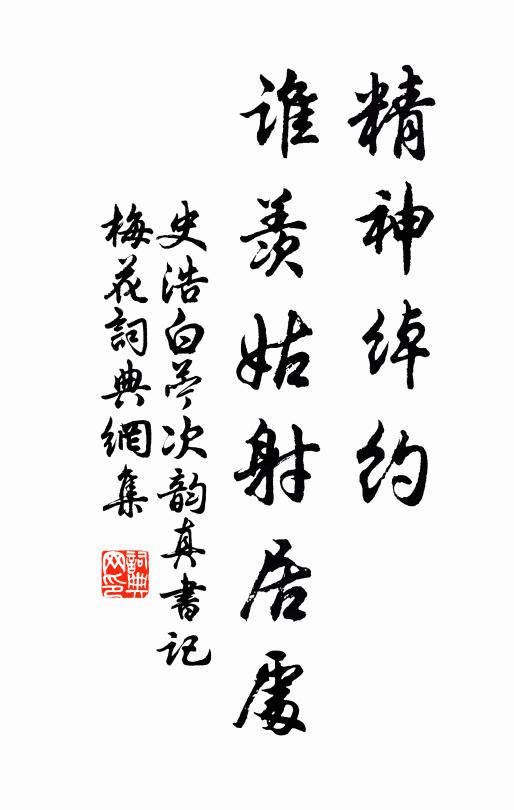 精神绰约
谁羡姑射居處
史浩白苎次韵真書记
梅花詞典網集
詞典网印